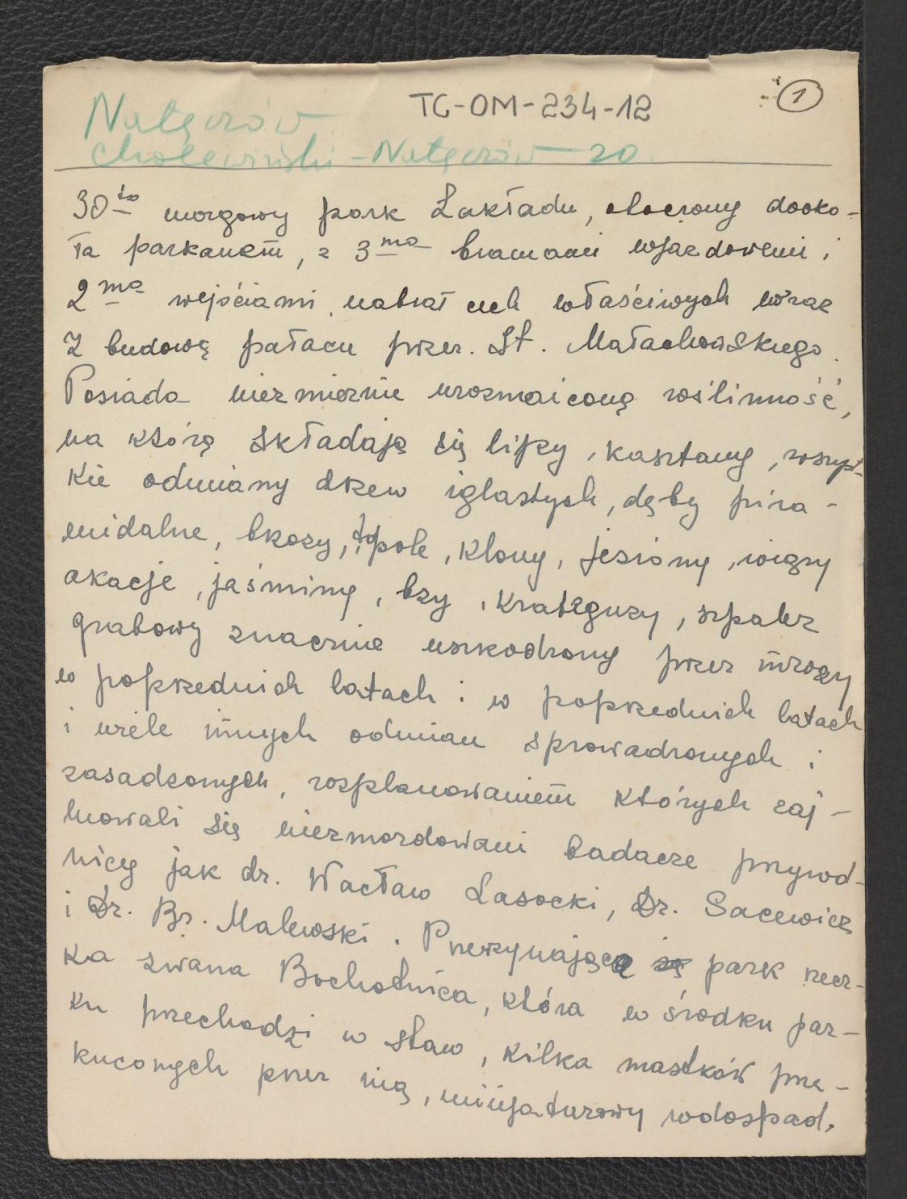 TG-OM-234-12
1
Nałęczów
Cholewiński - Nałęczów 20.
30to morgowy park Zakładu, otoczony dooko-
ła parkanem, z 3ma bramami wjazdowemi i
2ma wejściami nabrał cech właściwych wraz
z budową pałacu przez. St. Małachowskiego.
Posiada niezmiernie urozmaiconą roślinność,
na którą składają się lipy, kasztany, wszyst-
kie odmiany drzew iglastych, dęby pira-
midalne, brzozy, topole, klony, jesiony, wiązy
akacje, jaśminy, bzy, krategusy, szpaler
grabowy znacznie uszkodzony przez mrozy
w poprzednich latach i w poprzednich latach
i wiele innych odmian sprowadzonych i
zasadzonych, rozplanowaniem których zaj-
mowali się niezmordowani badacze przyrod-
nicy jak dr. Wacław Lasocki, Dr. Sacewicz
i Dr. Br. Malewski. Przerzynająca park rzecz-
ka zwana Bochotnica, która w środku par-
ku przechodzi w staw, kilka mostków prze-
rzuconych przez nią, miniaturowy wodospad,